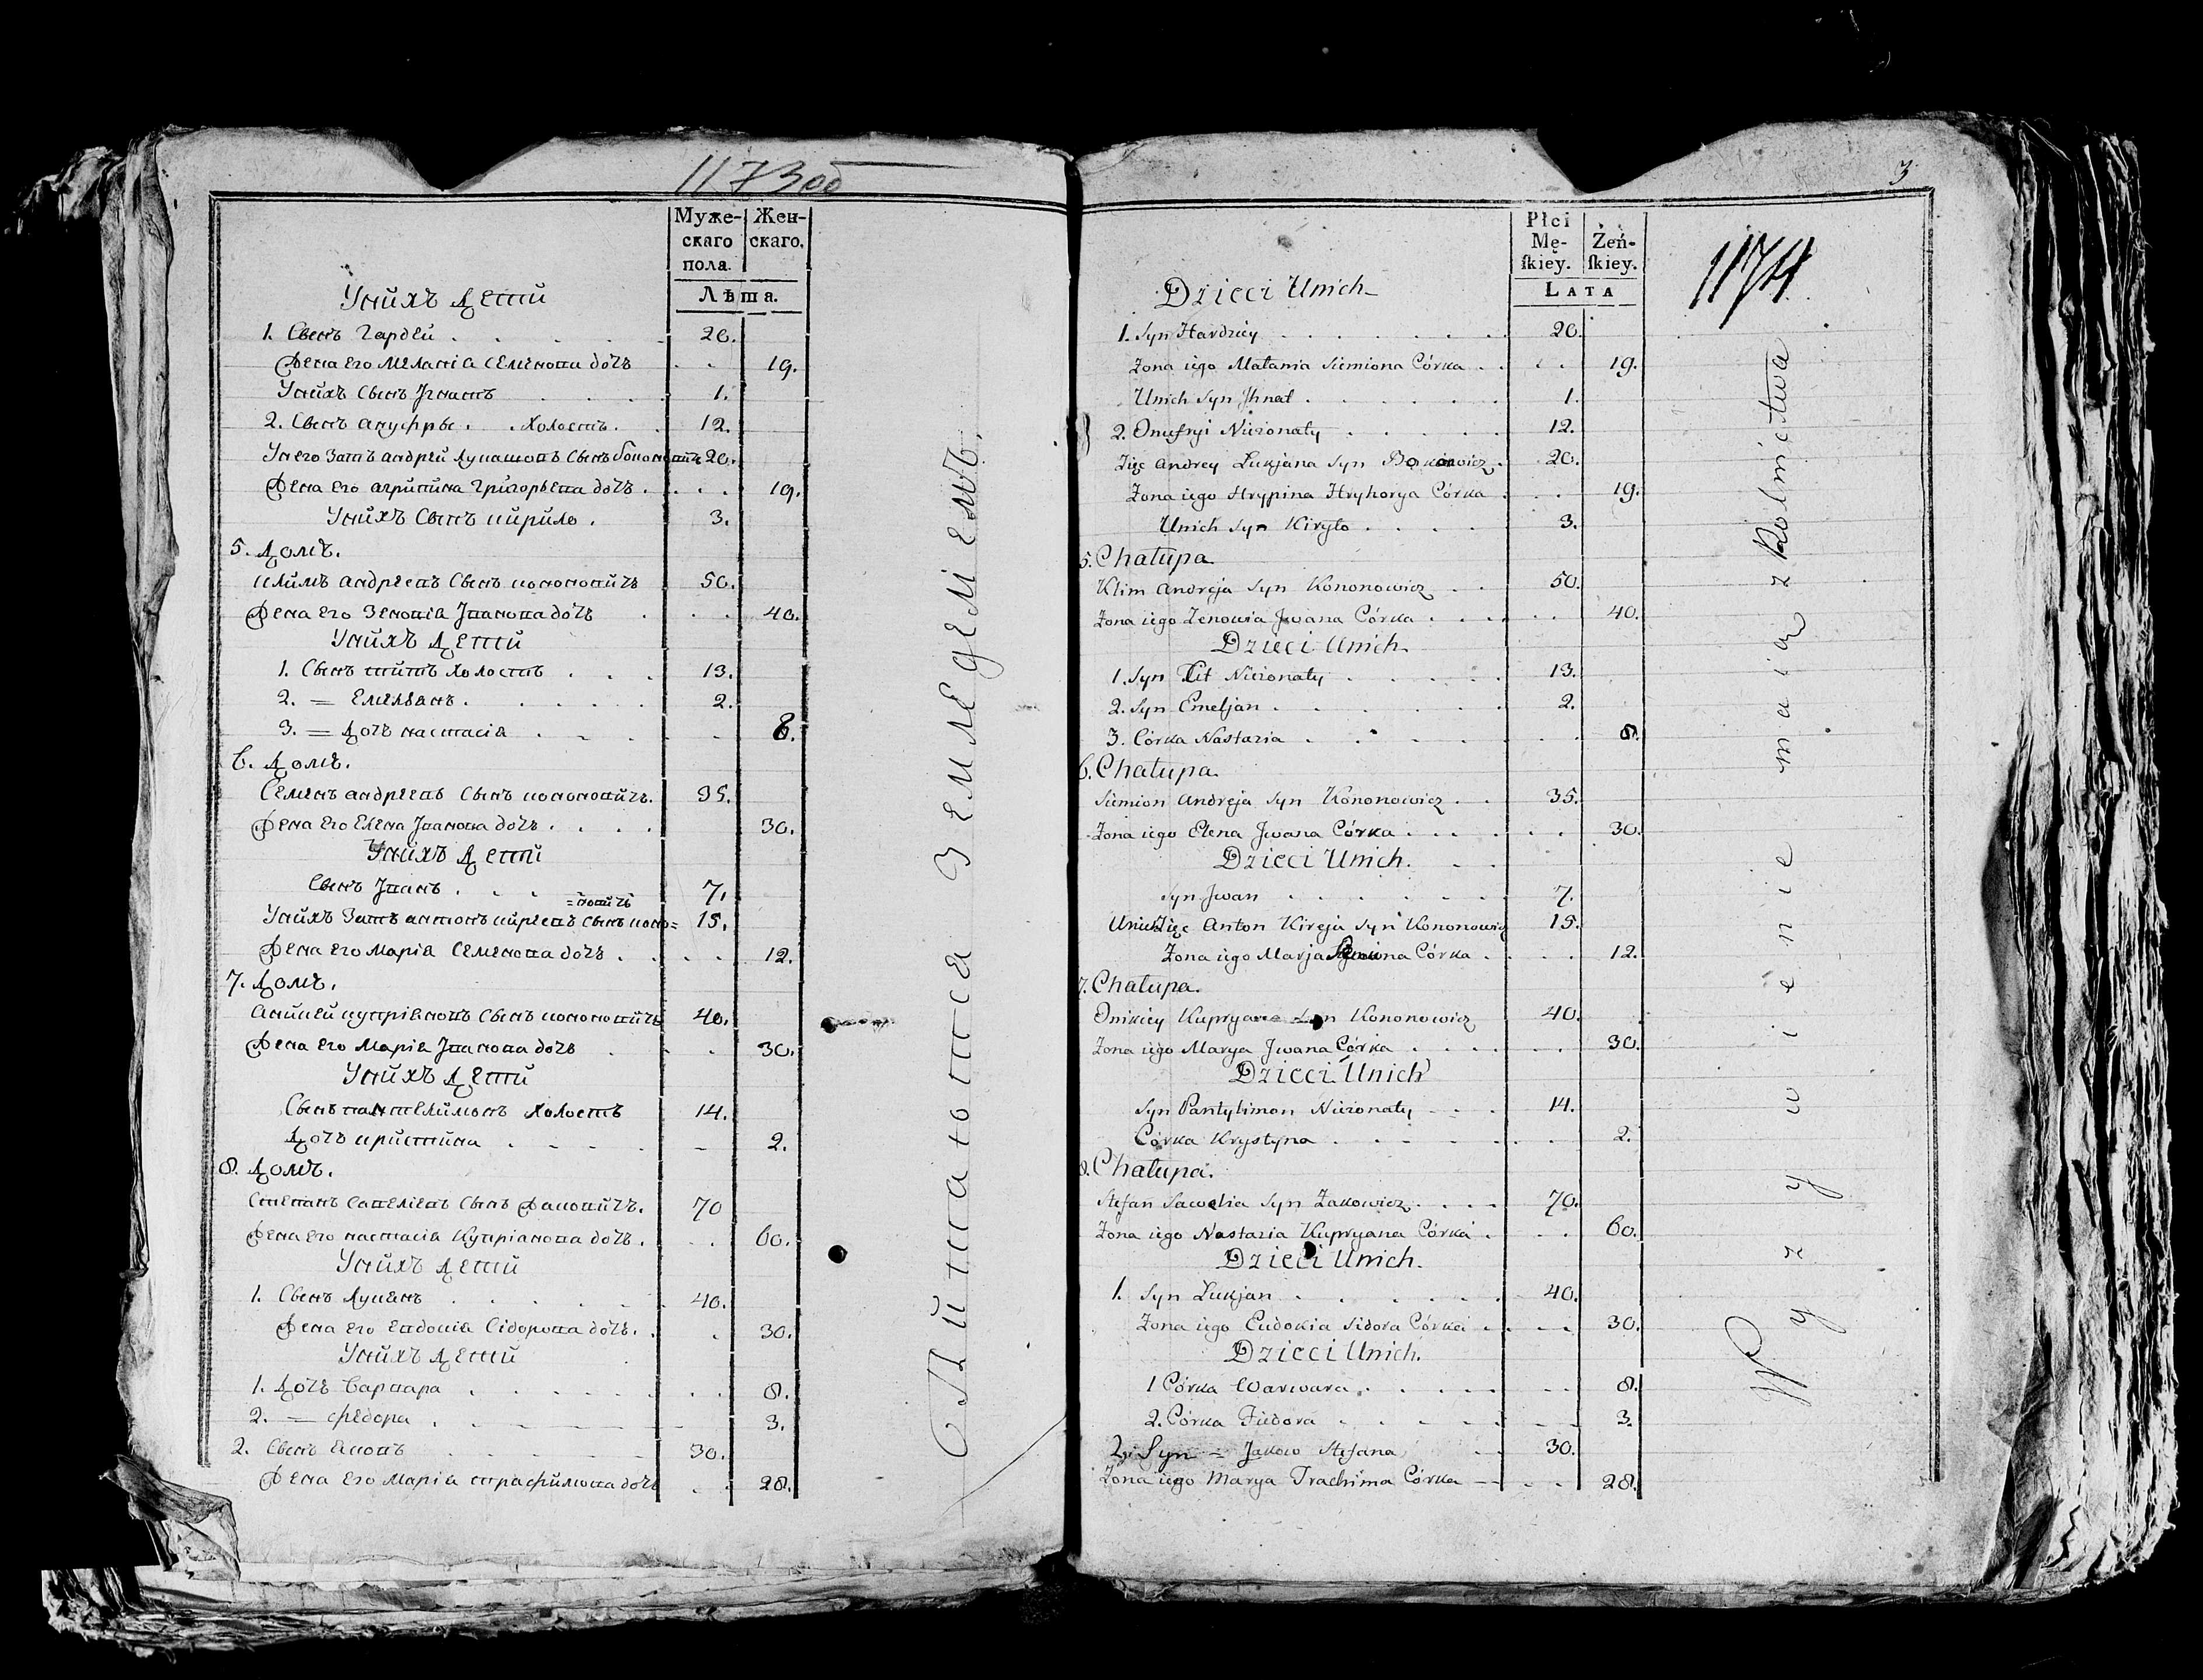 1173об
Муже-
скаго
пола.
Жен-
скаго.
Лѣта.
Унихъ Дети
1. Сынъ Гардей 20.
Жена его Меланія Семенова дочь 19.
Унихъ Сынъ Игнатъ 1.
2. Сынъ ануфры Холостъ. 12.
Унего Зять андрей Лукашовъ Сынъ 20.
Жена его агрипина Григорьева дочь 19.
Унихъ Сынъ кирило 3.
5. Домъ.
климъ андреевъ Сынъ кононовичъ 50.
Жена его Зеновія Іванова дочь 40.
Унихъ Дети
1. Сынъ титъ Холостъ 13.
2. = Емельянъ 2.
3. = Дочь настасія 8.
6. Домъ.
Семенъ андреевъ Сынъ кононовичъ. 35.
Жена его Елена Іванова дочь 30.
Унихъ Дети
Сынъ Іванъ 7.
=новичъ
Унихъ Зять антонъ киреевъ Сынъ коно= 15.
Жена его Марія Семенова дочь 12.
7. Домъ.
аникей купріяновъ Сынъ кононовичъ 40.
Жена его Марія Іванова дочь 30.
Унихъ Дети
Сынъ пантелимонъ Холостъ 14.
Дочь кристина 2.
8. Домъ.
Степанъ Савеліевъ Сынъ Жаковичъ. 70
Жена его настасія Купріанова дочь 60.
Унихъ Дети
1. Сынъ Лукянъ 40.
Жена его Евдокія Сідорова дочь. 30.
Унихъ Дети
1. Дочь Варвара 8.
2. = федора 3.
2. Сынъ Яковъ 30.
Жена его Марія трафимова дочь 28.
Питаются земледеліемъ.
3
1174
Płci
Mę-
ſkiey.
Żeń-
ſkiey.
LATA
Dzieci Unich
1. Syn Hardziey 20.
Zona iego Małania Siemiona Córka 19.
Unich Syn Jhnat 1.
2. Onufryi Nieżonaty 12.
Zięć Andrey Łukjana Syn 20.
Zona iego Hrypina Hryhorya Córka 19.
Unich Syn Kiryło 3.
5. Chałupa
Klim Andreja Syn Kononowicz 50.
Zona iego Zenowia Jwana Córka 40.
Dzieci Unich
1. Syn Tit Nieżonaty 13.
2. Syn Emeljan 2.
3. Córka Nastazia 8.
6. Chałupa.
Siemion Andreja Syn Kononowicz 35.
Zona iego Elena Jwana Córka 30.
Dzieci Unich.
Syn Jwan 7.
Unich Zięć Anton Kireja Syn Kononowicz 15.
Zona iego Marja Siemiona Córka 12.
7. Chałupa.
Onikiey Kupryana Syn Kononowicz 40.
Zona iego Marya Jwana Córka 30.
Dzieci Unich
Syn Pantylimon Nieżonaty 14.
Córka Krystyna 2.
8. Chałupa.
Stefan Sawelia Syn Żakowicz 70.
Zona iego Nastazia Kupryana Córka 60.
Dzieci Unich.
1. Syn Łukjan 40.
Zona iego Eudokia Sidora Córka 30.
Dzieci Unich.
1 Córka Warwara 8.
2. Córka Fiedora 3.
2. Syn = Jakow Stefana 30.
Zona iego Marya Trachima Córka 28.
Wyzywienie maią z Rolnictwa